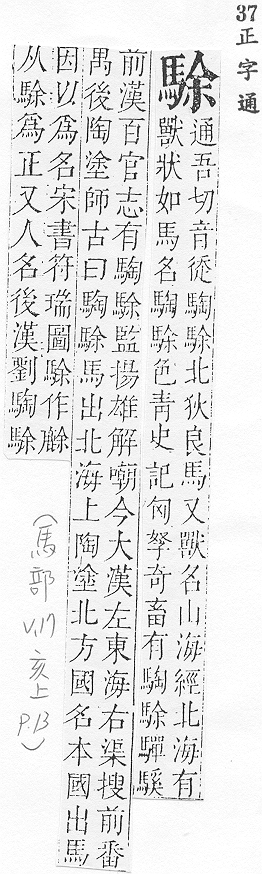 37正字通
駼
通吾切音徒騊駼北狄良馬又獸名山海經北海有
獸狀如馬名騊駼色靑史記匈孥奇畜有騊駼驒騱
前漢百官志有騊駼監揚雄解嘲今大漢左東海右渠搜前番
禺後陶塗師古曰騊駼馬出北海上陶塗北方國名本國出馬
因以爲名宋書符瑞圖駼作
从駼爲正又人名後漢劉騊駼
(馬部 V.17 亥上 P.13)